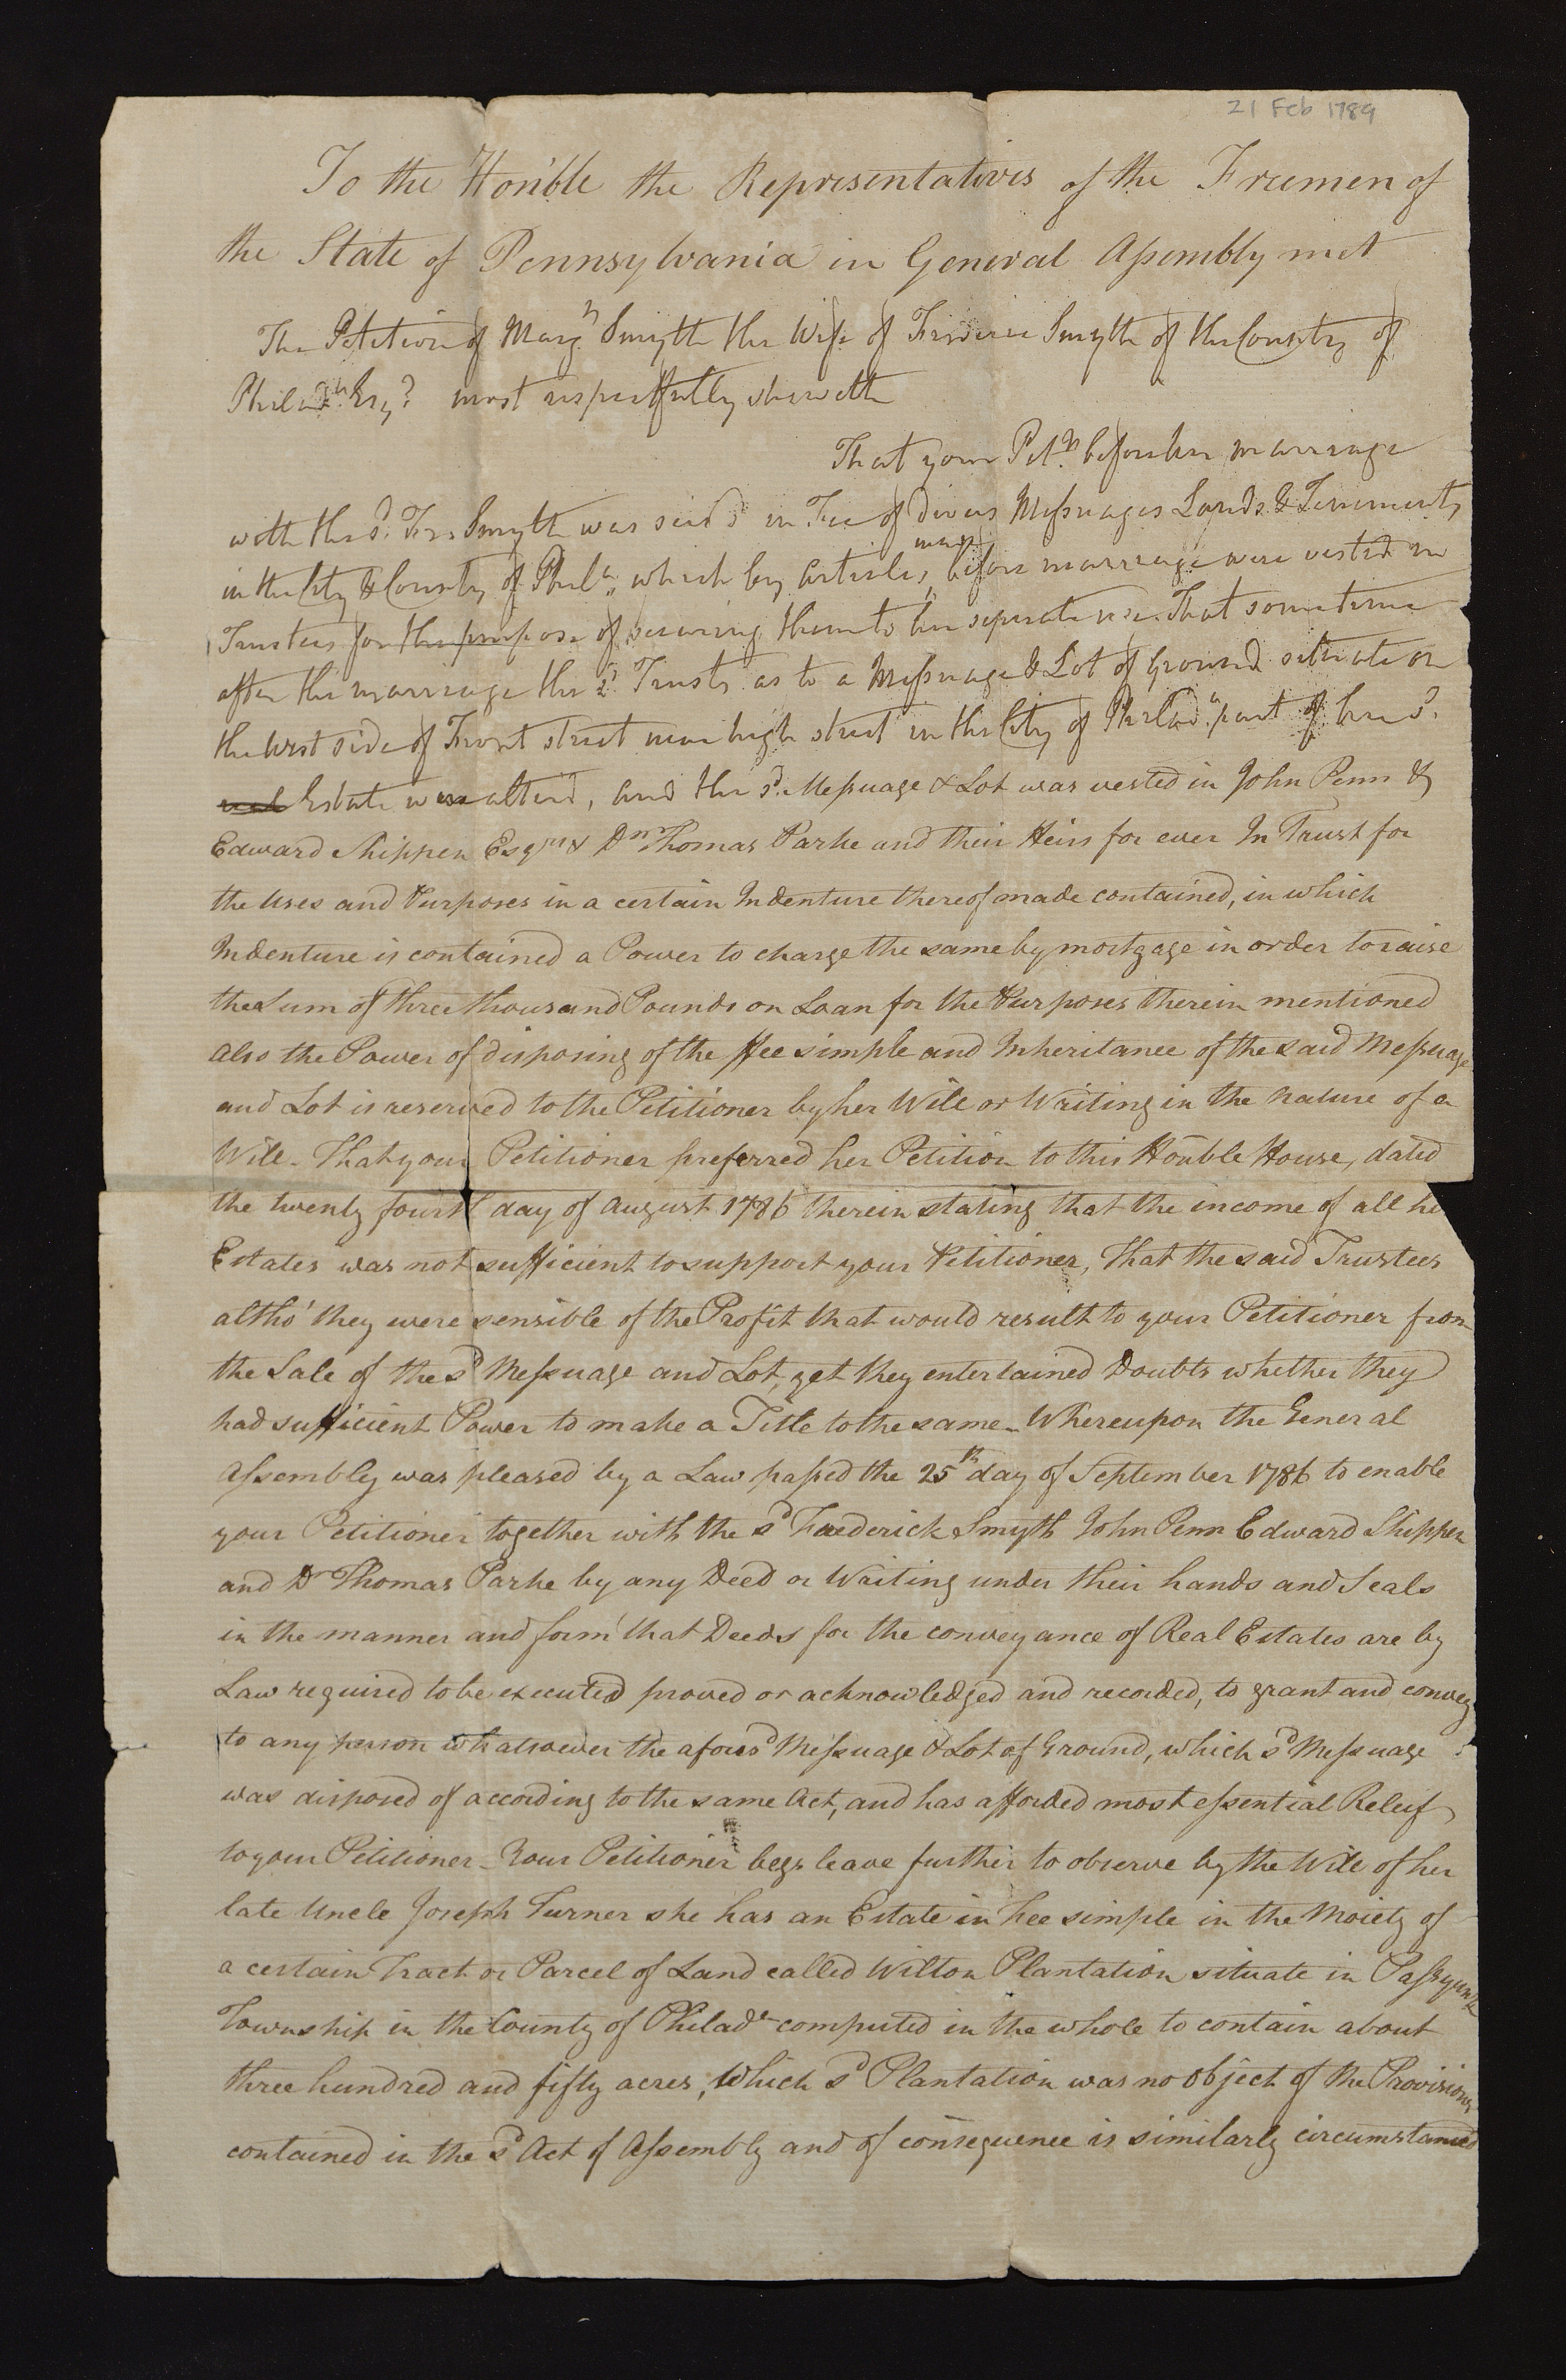 21 Feb 1789
To the Hon'ble the Representatives of the Freemen of
the State of Pennsylvania in General Assembly met
The Petition of Marg.t Smyth the Wife of Frederic Smyth of the County of
Philad.a Esq.r most respectfully sheweth
That your Pet.r before her marriage
with the s.d Fre. Smyth was seis'd in Fee of divers Messuages Lands & Tenements
in the City & County of Phil.a, which by Articles made before marriage were vested in
Trustees for the purpose of securing them to her separate use. That sometime
after the marriage the s.d Trusts as to a Messuage & Lot of Ground situate on
the West side of Front street near high street in the City of Philad.a part of her s.d
real Estate were alter'd, and the s.d Messuage & Lot was vested in John Penn &
Edward Shippen Esqrs & Dr Thomas Parke and their Heirs for ever In Trust for
the Uses and Purposes in a certain Indenture thereof made contained, in which
Indenture is contained a Power to charge the same by mortgage in order to raise
the Sum of three thousand Pounds on Loan for the Purposes therein mentioned
also the Power of disposing of the ffee simple and Inheritance of the said Messuage
and Lot is reserved to the Petitioner by her Will or Writing in the nature of a
Will - That your Petitioner preferred her Petition to this Honble House, dated
the twenty fourth day of August 1786 therein stating that the income of all
Estates was not sufficient to support your Petitioner, That the said Trustees
altho' they were sensible of the Profit that would result to your Petitioner from
the Sale of the sd Messuage and Lot, yet they entertained Doubts whether they
had sufficient Power to make a Title to the same - Whereupon the General
Assembly was pleased by a Law passed the 25th day of September 1786 to enable
your Petitioner together with the sd Frederick Smyth John Penn Edward Shippen
and Dr Thomas Parke by any Deed or Writing under their hands and Seals
in the manner and form that Deeds for the conveyance of Real Estates are by
Law required to be executed proved or acknowledged and recorded, to grant and convey
to any person whatsoever the aforesd Messuage & Lot of Ground, which sd Messuage
was disposed of according to the same Act, and has afforded most essential Releif
to your Petitioner - Your Petitioner begs leave further to observe by the Will of her
late Uncle Joseph Turner she has an Estate in Fee simple in the Moiety of
a certain Tract or Parcel of Land called Wilton Plantation situate in Passyunk
Township in the County of Philada computed in the whole to contain about
three hundred and fifty acres, which sd Plantation was no object of the Provisions
contained in the sd Act of Assembly and of consequence is similarly circumstanced